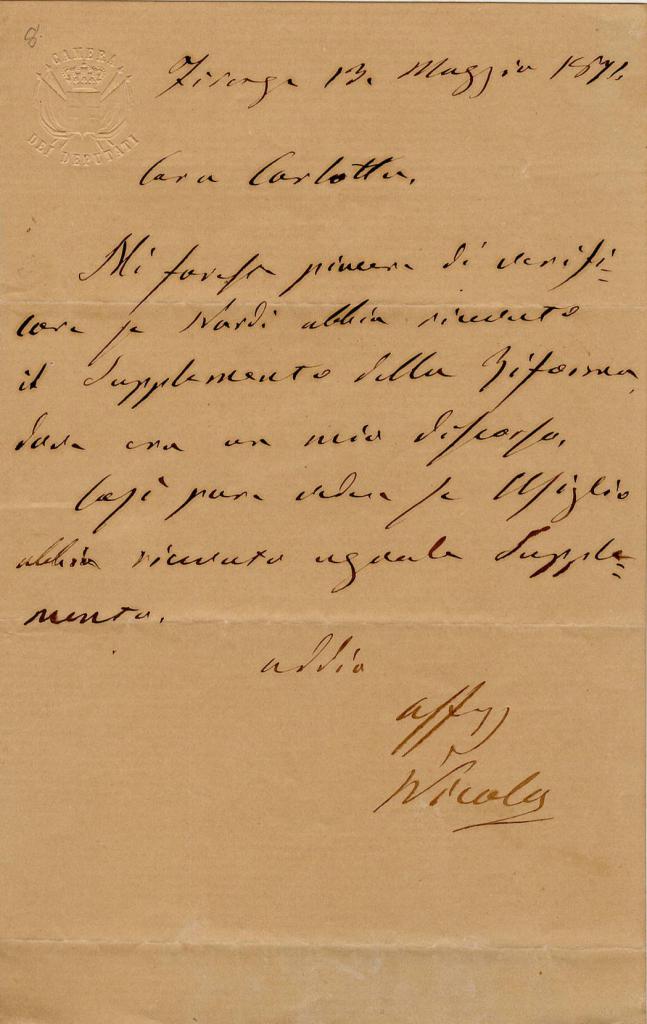 8.
CAMERA
DEI DEPUTATI
Firenze 13. Maggio 1871.
Cara Carlotta,
Mi faresti piacere di verifi=
care se Nardi abbia ricevuto
il Supplemento della Riforma,
dove era un mio discorso.
Così pure vedere se Usiglio
abbia ricevuto uguale Supple=
mento.
addio
aff
Nicola